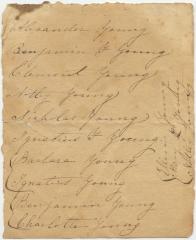 Alexander Young
Benjamin F Young
Clement Young
Young
Nicholas Young
Ignatius F Young
Barbara Young
Ignatius Young
Benjamin Young
Charlotte Young
Young
Young